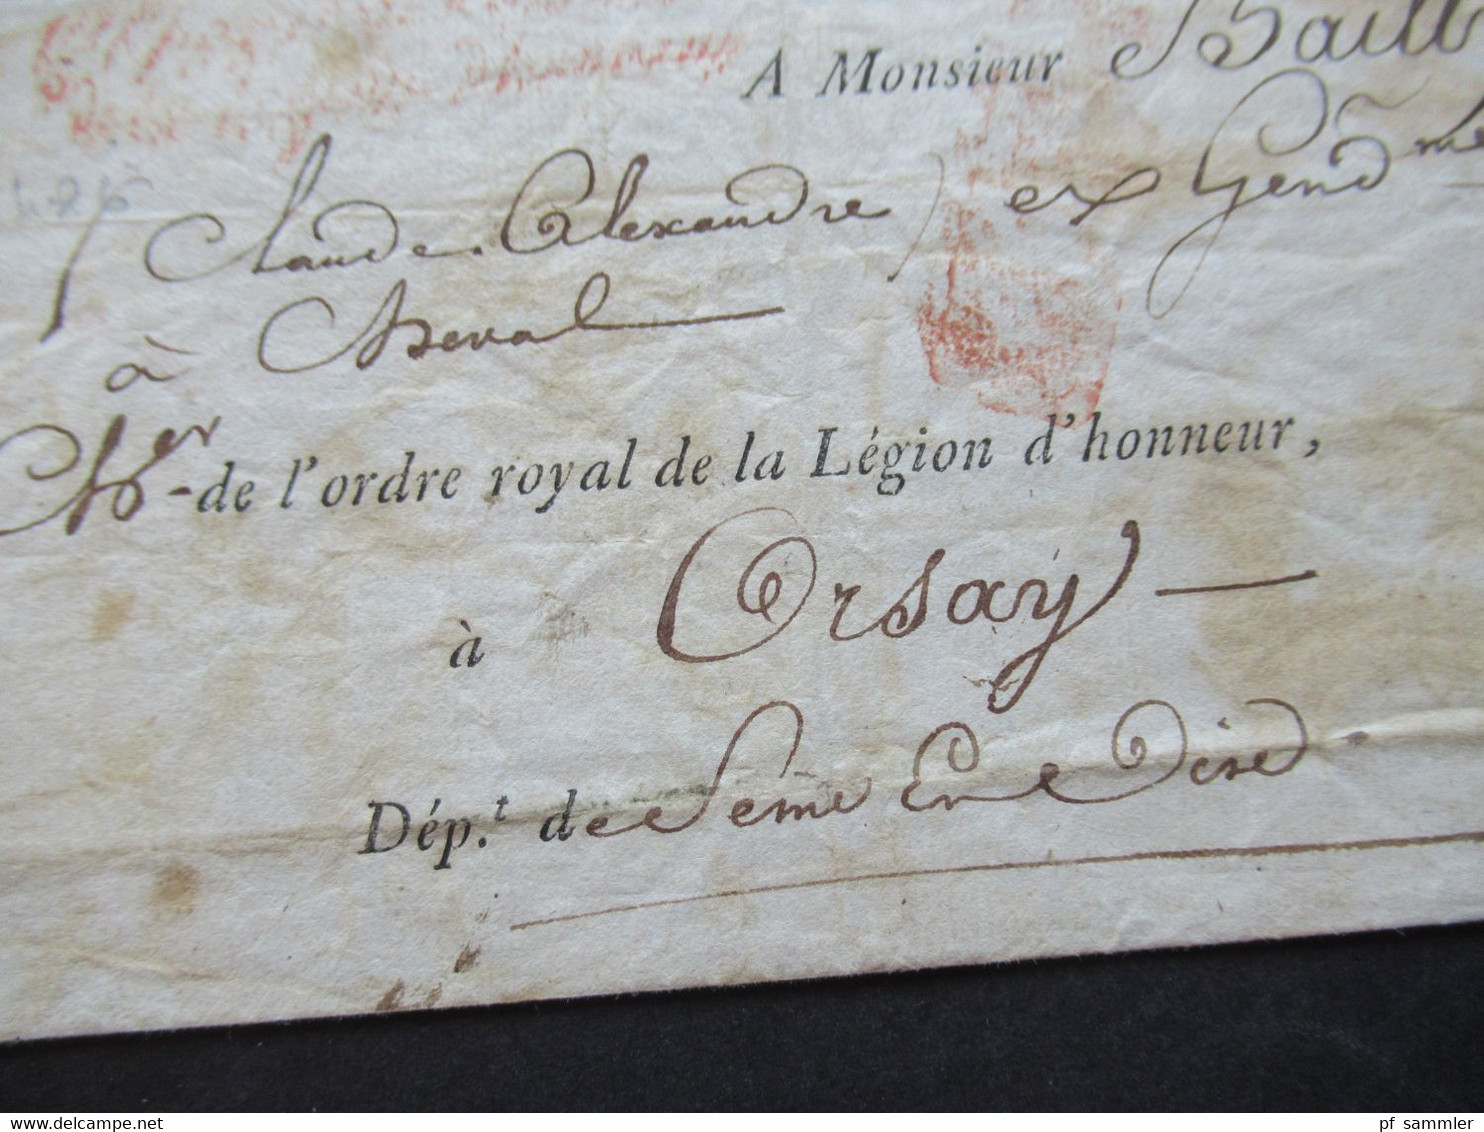 A Monsieur Baill
(Claude Alexandre) ex Gendme
à Cheval
Cher de l'ordre royal de la Légion d'honneur,
à Orsay
Dépt. de Seine En Oise
delcampe.net
pf_sammler